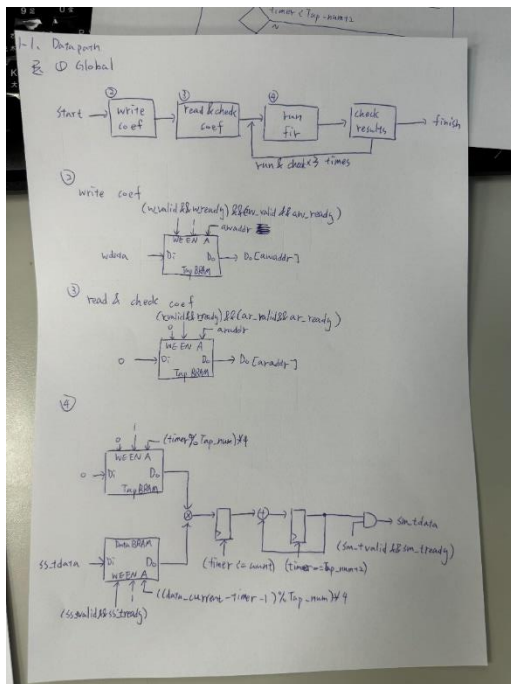 timer < Tap_num+2
N
1-1. Datapath
① Global
② ③ ④
start → write coef → read & check coef → run fir → check results → finish
run & check × 3 times
②
write coef
(wvalid && wready) && (aw_valid && aw_ready)
1
awaddr
WE EN A
wdata → Di Do → Do [awaddr]
Tap BRAM
③
read & check coef
(rvalid && rready) && (ar_valid && ar_ready)
0 araddr
WE EN A
0 → Di Do → Do [araddr]
Tap BRAM
④
0 1 (timer % Tap_num)*4
WE EN A
0 → Di Do
Tap BRAM
sm_tdata
Data BRAM
(timer <= count) (timer == Tap_num+2) (sm_tvalid && sm_tready)
ss_tdata → Di Do
WE EN A
1 ((data_current-timer-1) % Tap_num)*4
(ss_tvalid && ss_tready)